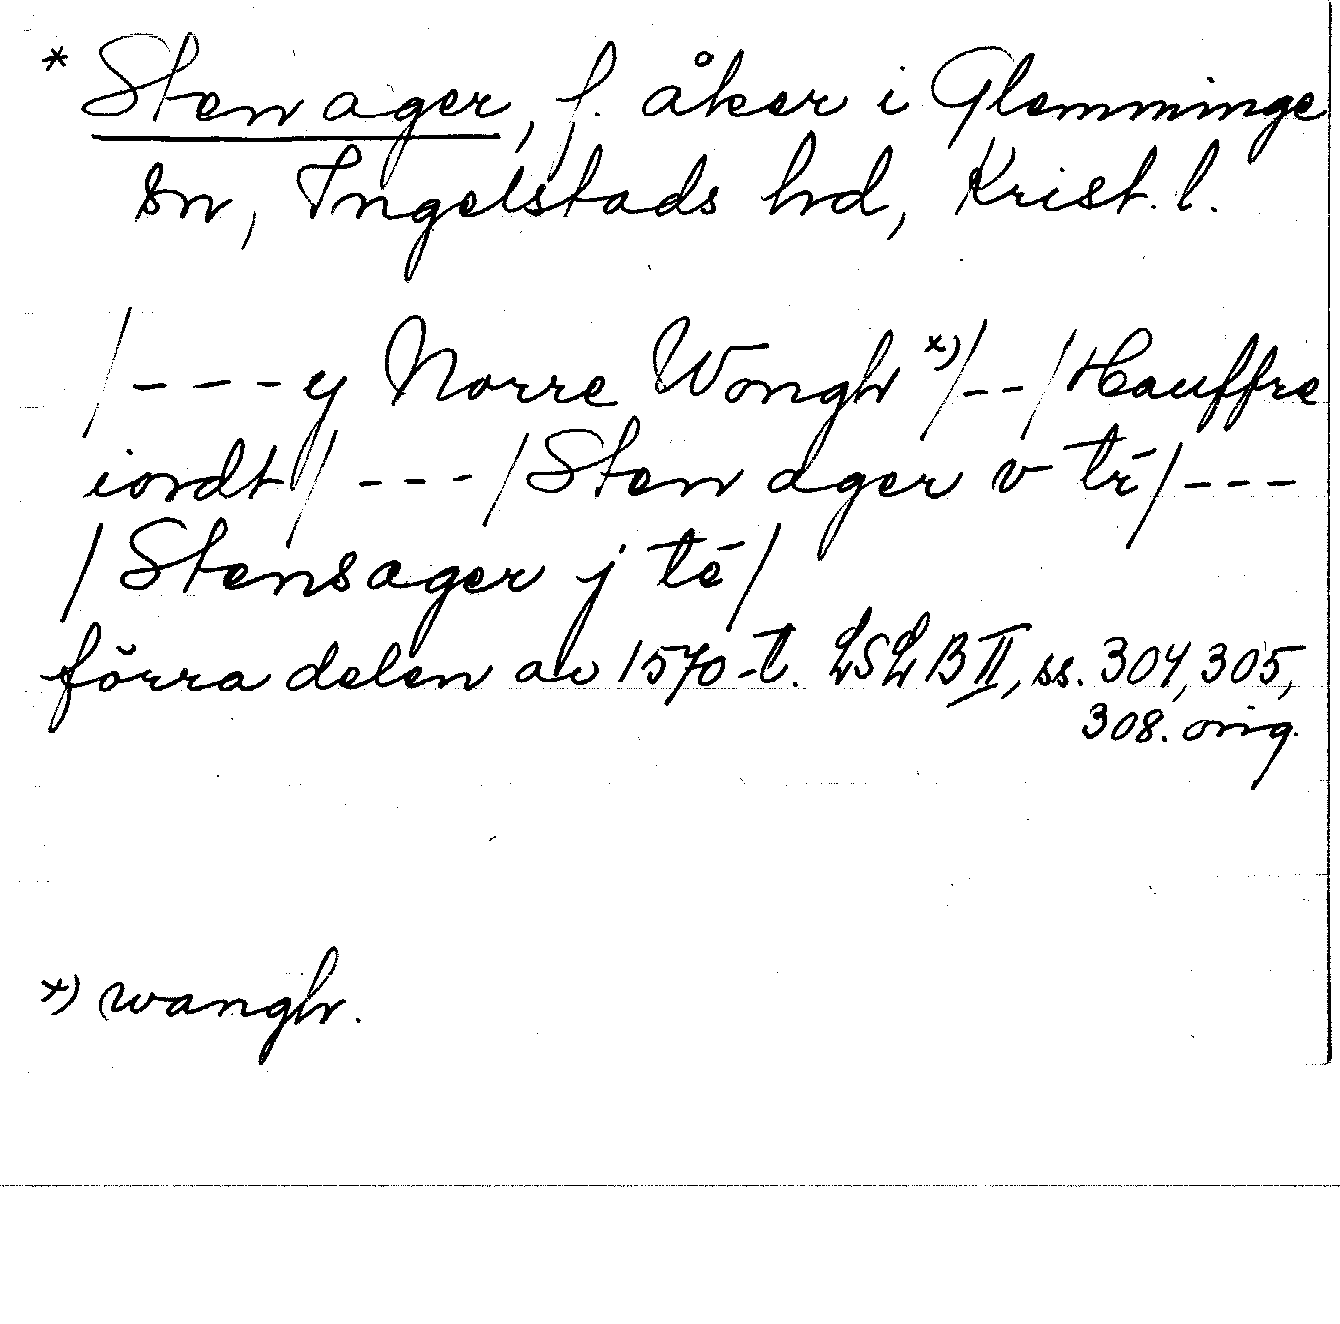 * Sten ager, f. åker i Glemminge
sn, Ingelstads hd, Krist. l.
/ - - - y Norre Wongh x) / - - / Hauffre
iordt / - - - / Sten ager v tr̄ / - - -
/ Stensager j tē /
förra delen av 1570-t. LSL B II, ss. 304, 305,
308. orig.
x) wangh.